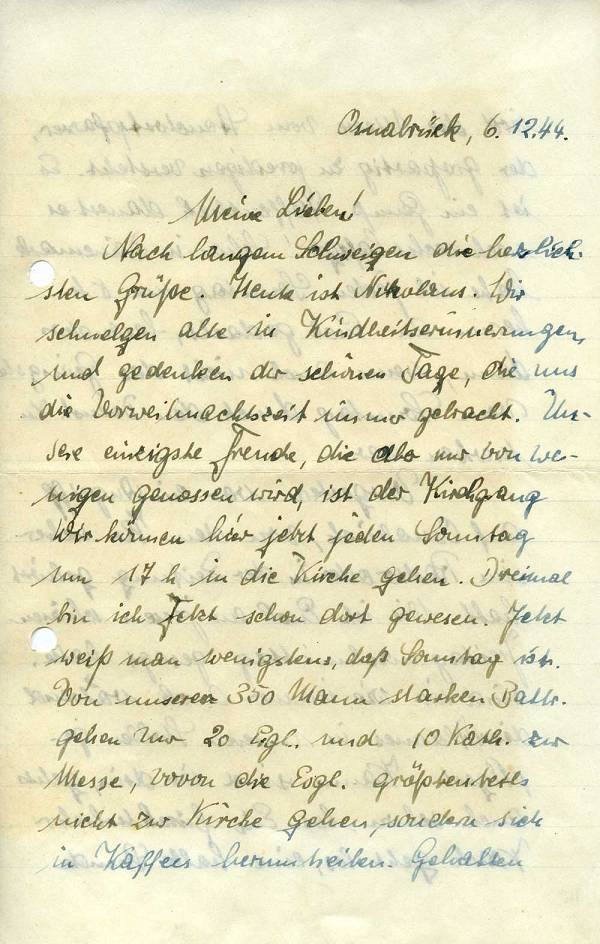 Osnabrück, 6.12.44.
Meine Lieben!
Nach langem Schweigen die herzlich-
sten Grüße. Heute ist Nikolaus. Wir
schwelgen alle in Kindheitserinnerungen,
und gedenken der schönen Tage, die uns
die Vorweihnachtszeit immer gebracht. Un-
sere einzigste Freude, die aber nur von we-
nigen genossen wird, ist der Kirchgang
Wir können hier jetzt jeden Sonntag
um 17 h in die Kirche gehen. Dreimal
bin ich jetzt schon dort gewesen. Jetzt
weiß man wenigstens, daß Sonntag ist.
Von unserer 350 Mann starken Battr.
gehen nur 20 Evgl. und 10 Kath. zur
Messe, wovon die Evgl. größtenteils
nicht zur Kirche gehen, sondern sich
in Kaffees herumtreiben. Gehalten